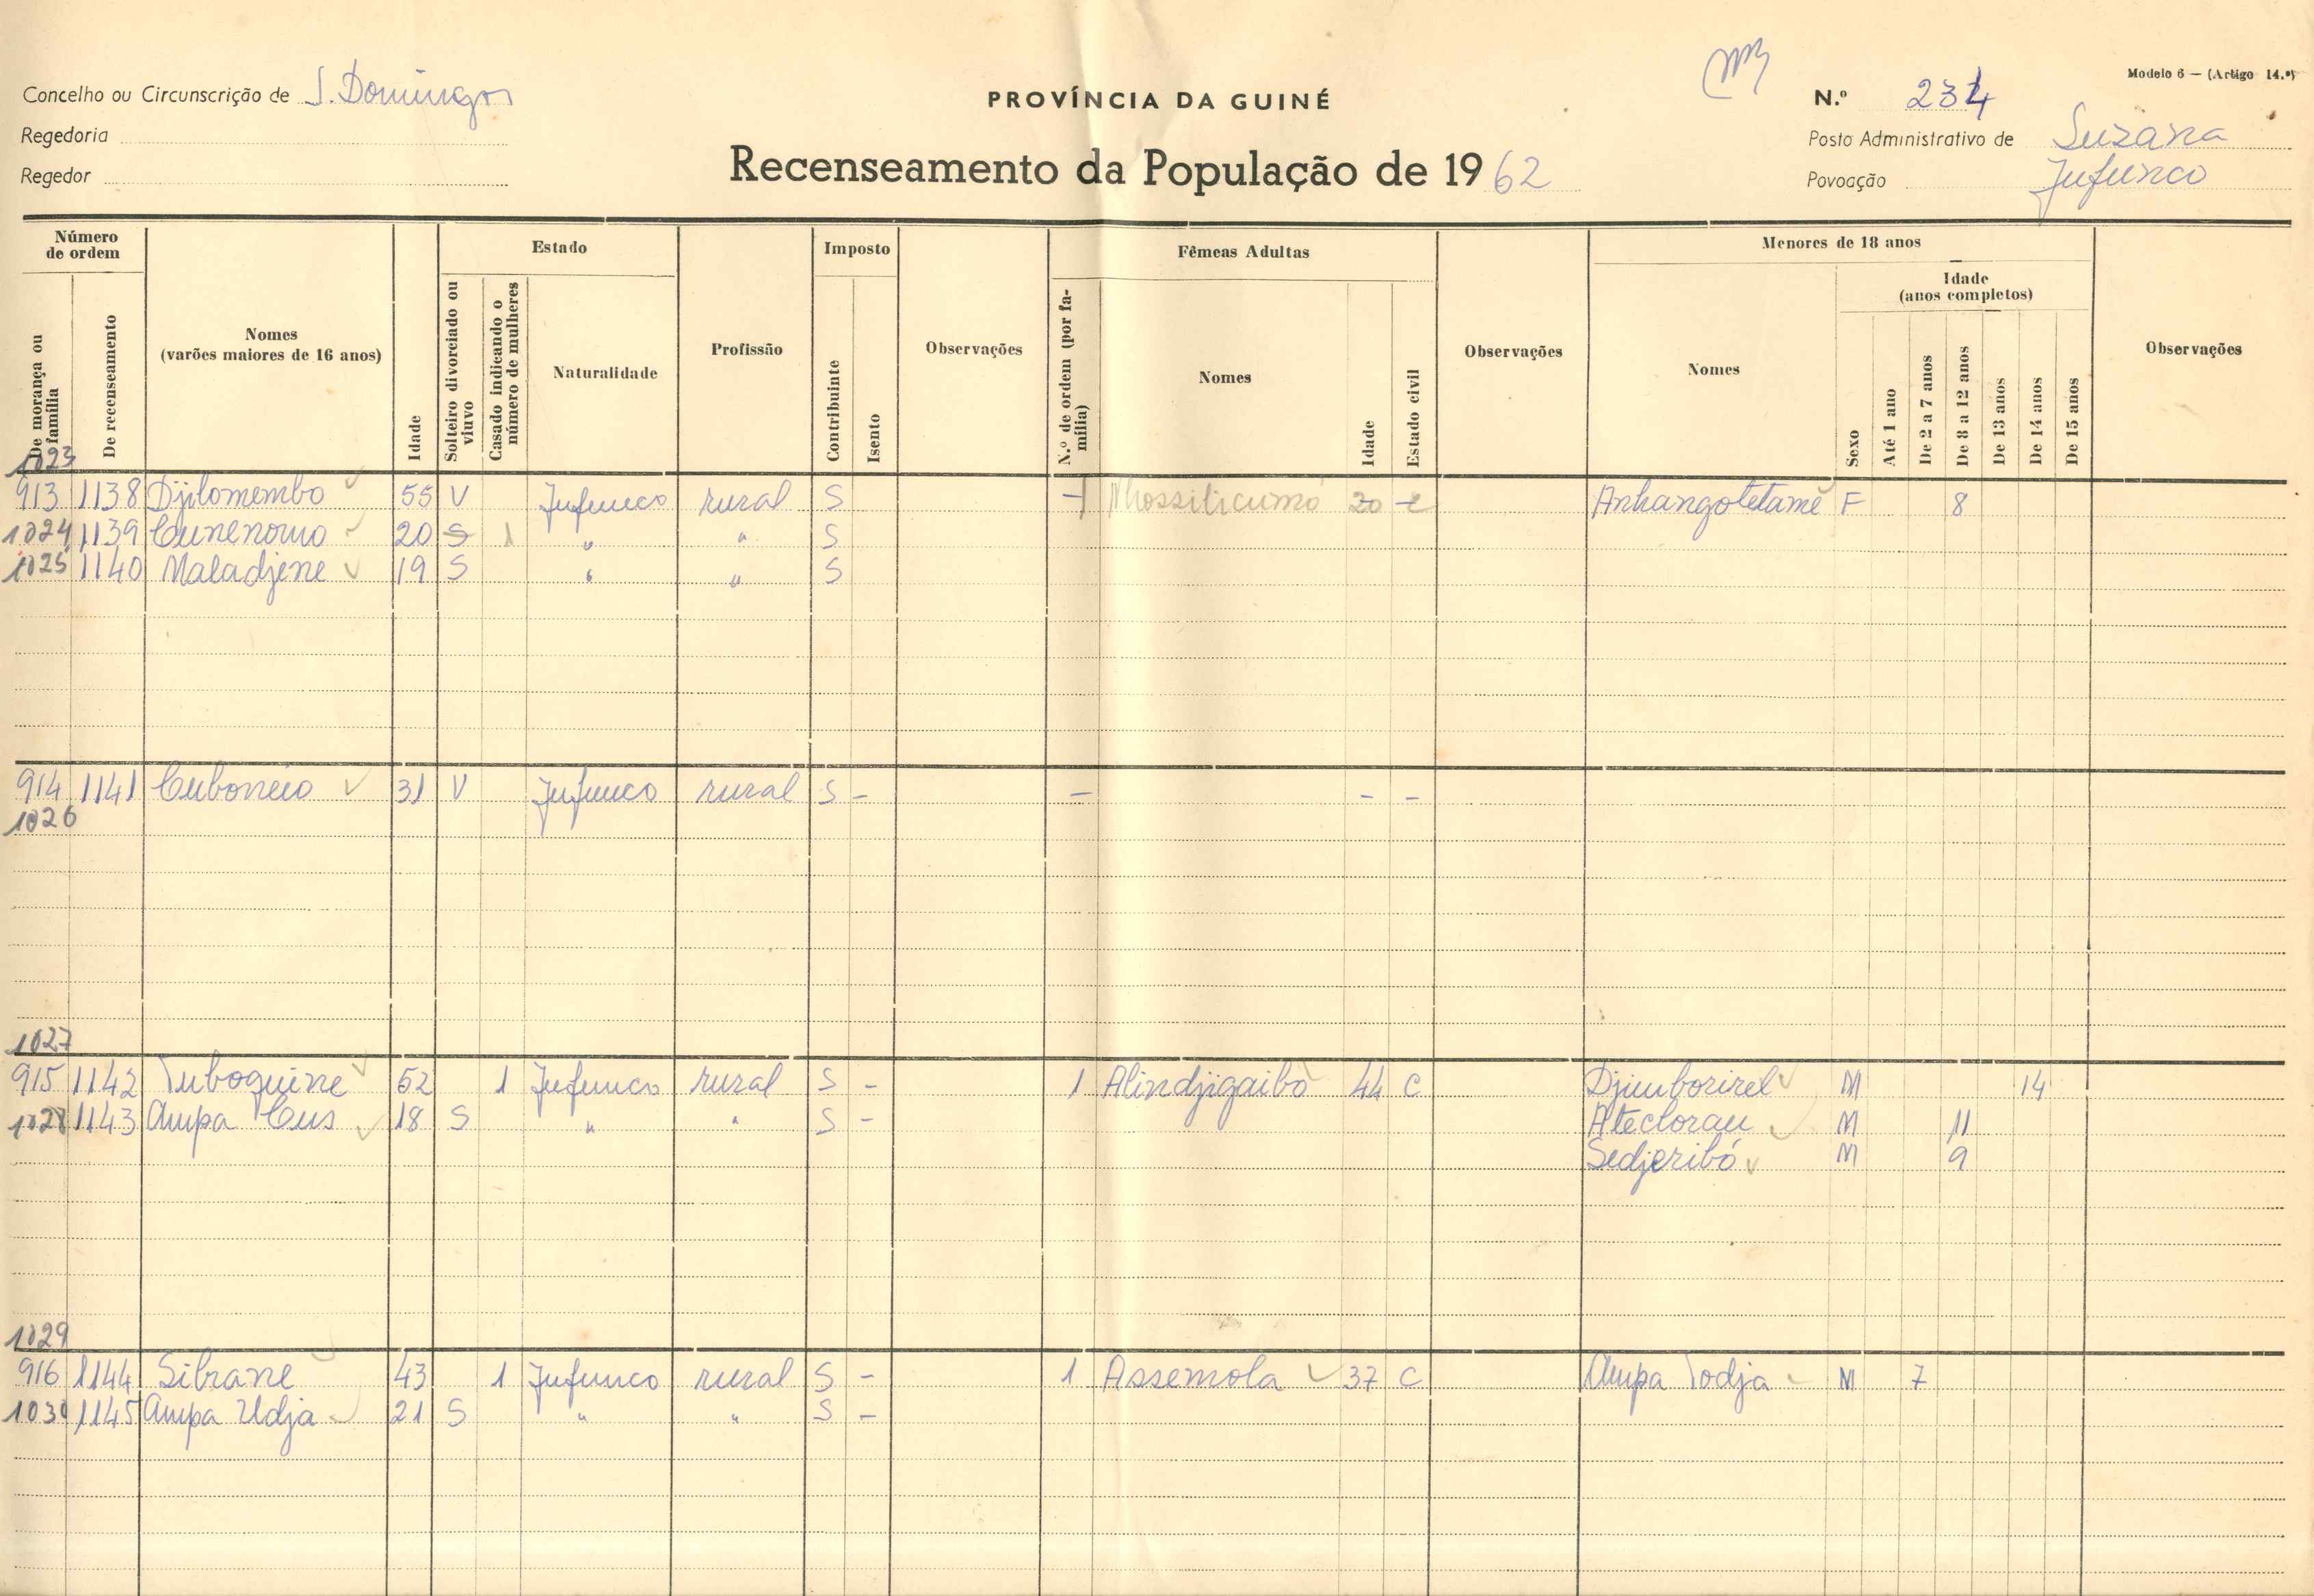 Modelo 6 — (Artigo 14.º)
Concelho ou Circunscrição de S. Domingos
PROVÍNCIA DA GUINÉ
N.º 234
Regedoria
Posto Administrativo de Suzana
Regedor
Recenseamento da População de 1962
Povoação Jufunco
Número de ordem
Estado
Imposto
Fêmeas Adultas
Menores de 18 anos
Idade (anos completos)
De morança ou família
De recenseamento
Nomes (varões maiores de 16 anos)
Idade
Solteiro divorciado ou viuvo
Casado indicando o número de mulheres
Naturalidade
Profissão
Contribuinte
Isento
Observações
N.º de ordem (por família)
Nomes
Idade
Estado civil
Observações
Nomes
Sexo
Até 1 ano
De 2 a 7 anos
De 8 a 12 anos
De 13 anos
De 14 anos
De 15 anos
Observações
1023
913 1138 Djilomembo 55 V Jufunco rural S - 1 Nhossilicumó 20 c Anhangotetame F 8
1024 1139 Cunenomo 20 S 1 " " S
1025 1140 Maladjene 19 S " " S
914 1141 Cuboneio 31 V Jufunco rural S - - - -
1026
1027
915 1142 Tuboguine 62 1 Jufunco rural S - 1 Alindjigaibo 44 C Djimborirel M 14
1028 1143 Ampa Cus 18 S " " S - Ateclorau M 11
Sedjeribó M 9
1029
916 1144 Sibrane 43 1 Jufunco rural S - 1 Assemola 37 C Ampa Todja M 7
1030 1145 Ampa Udja 21 S " " S -